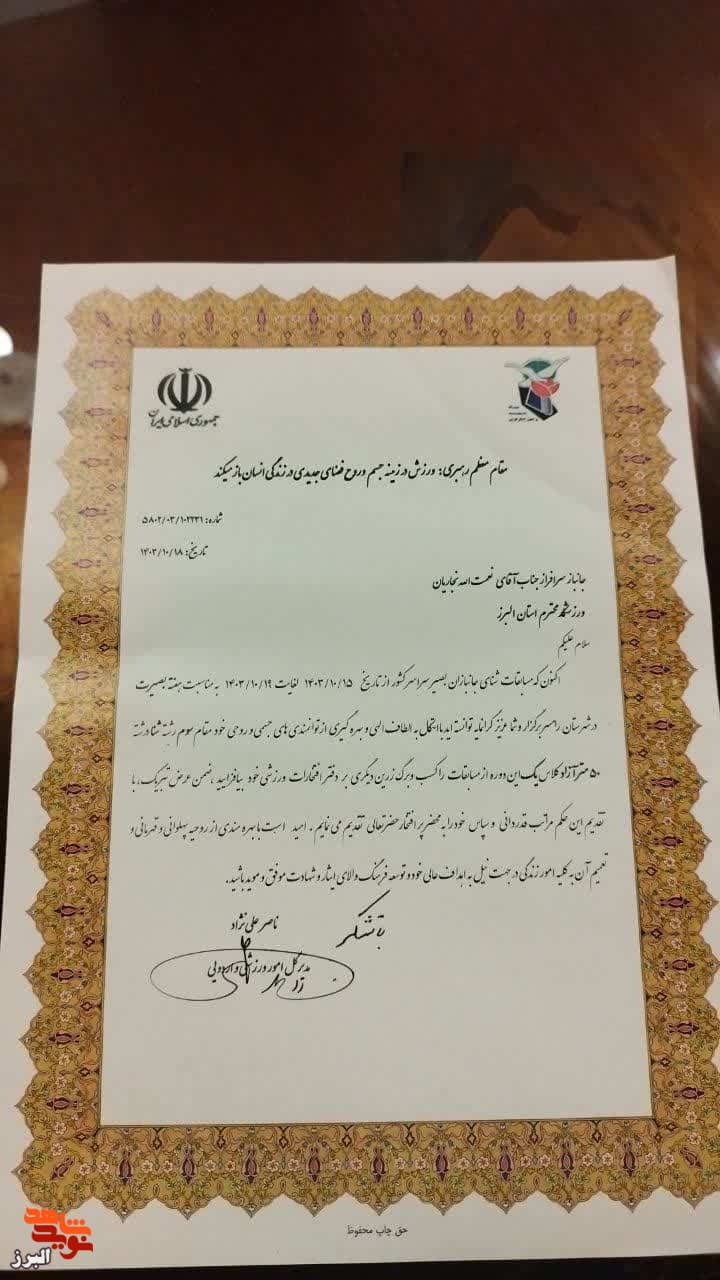 جمهوری اسلامی ایران
مقام معظم رهبری: ورزش در زمینه جسم و روح فضای جدیدی در زندگی انسان باز میکند
شماره: ۵۸۰۲/۰۳/۱۰۲۲۳۱
تاریخ: ۱۴۰۳/۱۰/۱۸
جانباز سرافراز جناب آقای نعمت الله نجاریان
ورزشکار محترم استان البرز
سلام علیکم
اکنون که مسابقات شنای جانبازان بصیر سراسر کشور از تاریخ ۱۴۰۳/۱۰/۱۵ لغایت ۱۴۰۳/۱۰/۱۹ به مناسبت هفته بصیرت
در شهرستان رامسر برگزار و شما عزیز گرانمایه توانسته اید با اتکال به الطاف الهی و بهره گیری از توانمندی های جسمی و روحی خود مقام سوم رشته شنا در شته
۵۰ متر آزاد کلاس یک این دوره از مسابقات را کسب و برگ زرین دیگری بر دفتر افتخارات ورزشی خود بیافزایید، ضمن عرض تبریک، با
تقدیم این حکم مراتب قدردانی و سپاس خود را به محضر پر افتخار حضرتعالی تقدیم می نمایم. امید است با بهره مندی از روحیه پهلوانی و قهرمانی و
تعمیم آن به کلیه امور زندگی در جهت نیل به اهداف عالی خود و توسعه فرهنگ والای ایثار و شهادت موفق و موید باشید.
با تشکر
ناصر علی نژاد
مدیر کل امور ورزشی و اردویی
حق چاپ محفوظ
نوید شاهد
البرز